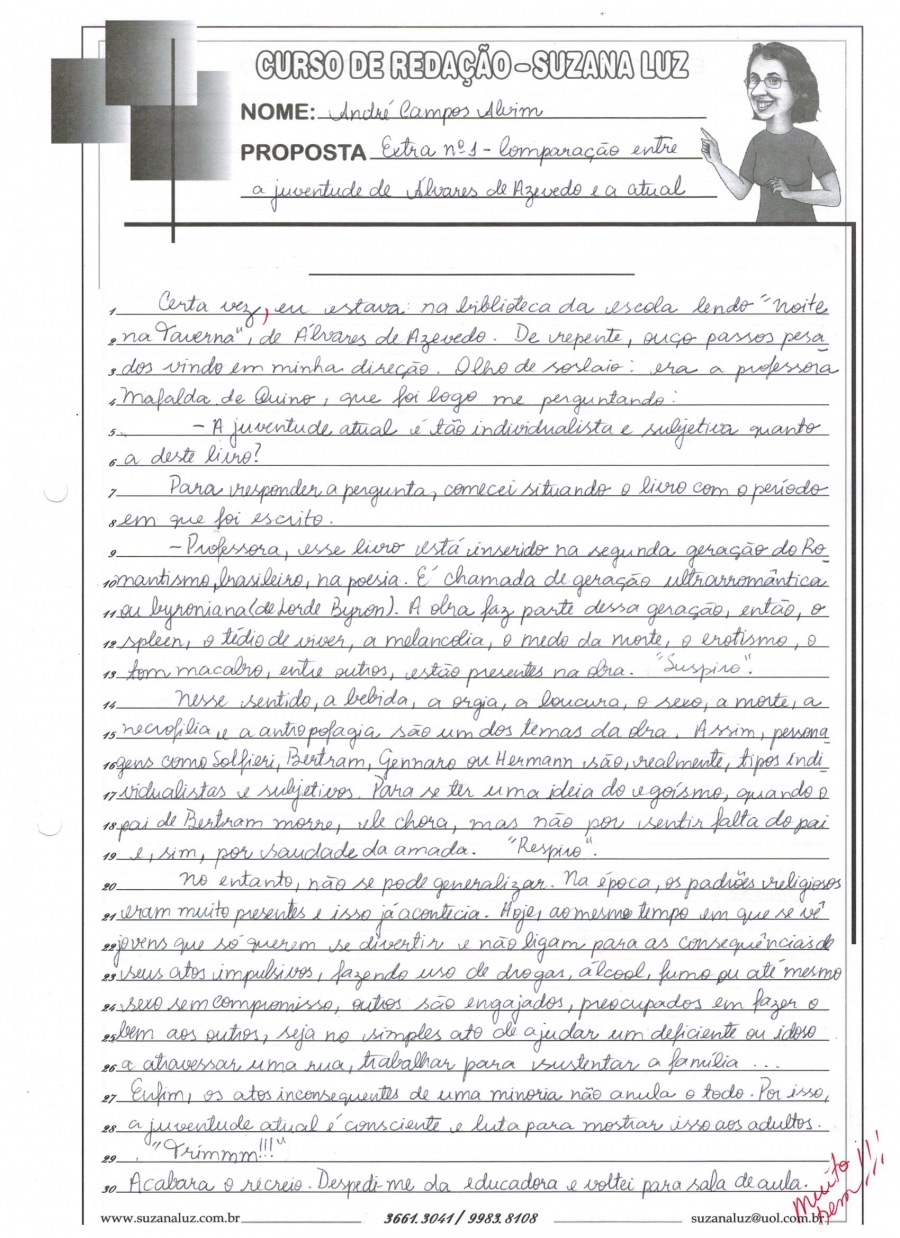 CURSO DE REDAÇÃO - SUZANA LUZ
NOME: André Campos Alvim
PROPOSTA Extra nº 1 - Comparação entre
a juventude de Álvares de Azevedo e a atual
1 Certa vez, eu estava na biblioteca da escola lendo "Noite
2 na Taverna", de Álvares de Azevedo. De repente, ouço passos pesa
3 dos vindo em minha direção. Olho de soslaio: era a professora
4 Mafalda de Quino, que foi logo me perguntando:
5 - A juventude atual é tão individualista e subjetiva quanto
6 a deste livro?
7 Para responder a pergunta, comecei situando o livro com o período
8 em que foi escrito.
9 - Professora, esse livro está inserido na segunda geração do Ro-
10 mantismo brasileiro, na poesia. É chamada de geração ultrarromântica
11 ou byroniana (de Lorde Byron). A obra faz parte dessa geração, então, o
12 spleen, o tédio de viver, a melancolia, o medo da morte, o erotismo, o
13 tom macabro, entre outros, estão presentes na obra. "Suspiro".
14 Nesse sentido, a bebida, a orgia, a loucura, o sexo, a morte, a
15 necrofilia e a antropofagia são um dos temas da obra. Assim, persona
16 gens como Solfieri, Bertram, Gennaro ou Hermann são, realmente, tipos indi
17 vidualistas e subjetivos. Para se ter uma ideia do egoísmo, quando o
18 pai de Bertram morre, ele chora, mas não por sentir falta do pai
19 e, sim, por saudade da amada. "Respiro".
20 No entanto, não se pode generalizar. Na época, os padrões religiosos
21 eram muito presentes e isso já acontecia. Hoje, ao mesmo tempo em que se vê
22 jovens que só querem se divertir e não ligam para as consequências de
23 seus atos impulsivos, fazendo uso de drogas, álcool, fumo ou até mesmo
24 sexo sem compromisso, outros são engajados, preocupados em fazer o
25 bem aos outros, seja no simples ato de ajudar um deficiente ou idoso
26 a atravessar uma rua, trabalhar para sustentar a família ...
27 Enfim, os atos inconsequentes de uma minoria não anula o todo. Por isso,
28 a juventude atual é consciente e luta para mostrar isso aos adultos.
29 "Trimmm!!!"
30 Acabara o recreio. Despedi-me da educadora e voltei para sala de aula.
muito
bem!!!
www.suzanaluz.com.br 3661.3041 / 9983.8108 suzanaluz@uol.com.br